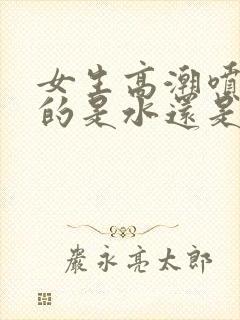 女生高潮噴
的是水還是
嚴永亮太郎